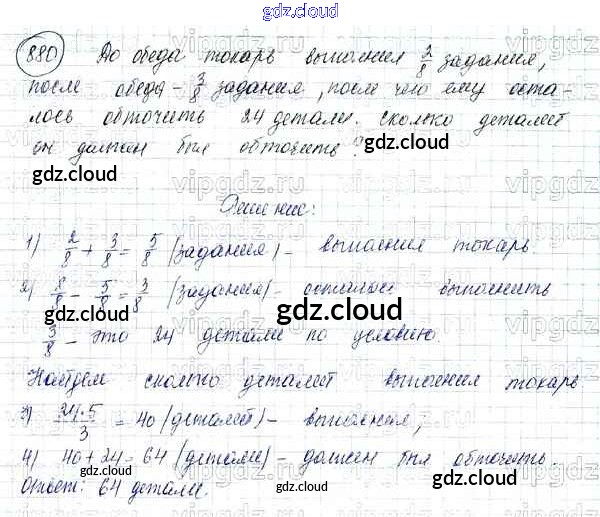 gdz.cloud
880) До обеда токарь выполнил 2/8 задания,
после обеда - 3/8 задания, после чего ему оста-
лось обточить 24 детали. Сколько деталей
он должен был обточить?
gdz.cloud
gdz.cloud
Решение:
1) 2/8 + 3/8 = 5/8 (задания) - выполнил токарь.
gdz.cloud
2) 8/8 - 5/8 = 3/8 (задания) - осталось выполнить
gdz.cloud
3/8 - это 24 детали по условию.
Найдем сколько деталей выполнил токарь
3) 24·5/3 = 40 (деталей) - выполнил,
gdz.cloud
gdz.cloud
4) 40 + 24 = 64 (детали) - должен был обточить.
Ответ: 64 детали.
gdz.cloud
gdz.cloud